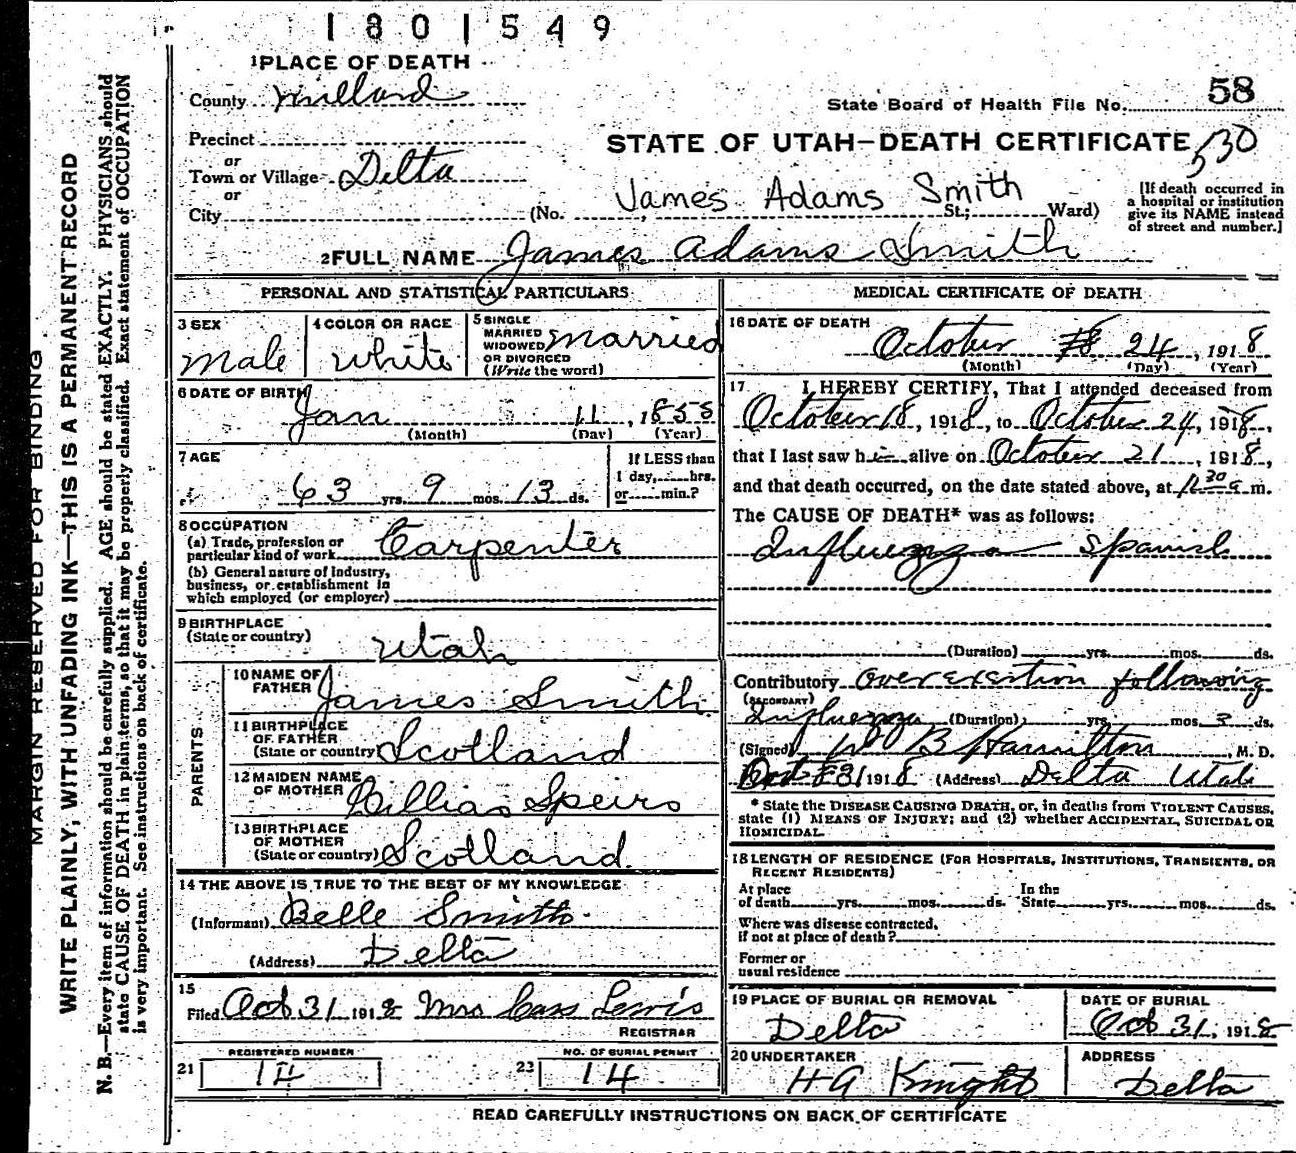 1801549
1 PLACE OF DEATH
County Millard
State Board of Health File No. 58
Precinct
STATE OF UTAH—DEATH CERTIFICATE 530
or
Town or Village Delta
or
James Adams Smith
City (No. , St.; Ward)
[If death occurred in
a hospital or institution
give its NAME instead
of street and number.]
2 FULL NAME James Adams Smith
PERSONAL AND STATISTICAL PARTICULARS
3 SEX
Male
4 COLOR OR RACE
White
5 SINGLE
MARRIED
WIDOWED
OR DIVORCED
(Write the word)
Married
6 DATE OF BIRTH
Jan 11, 1855
(Month) (Day) (Year)
7 AGE
63 yrs. 9 mos. 13 ds.
If LESS than
1 day, hrs.
or min.?
8 OCCUPATION
(a) Trade, profession or
particular kind of work Carpenter
(b) General nature of industry,
business, or establishment in
which employed (or employer)
9 BIRTHPLACE
(State or country)
Utah
PARENTS
10 NAME OF
FATHER James Smith
11 BIRTHPLACE
OF FATHER
(State or country) Scotland
12 MAIDEN NAME
OF MOTHER Gillias Speirs
13 BIRTHPLACE
OF MOTHER
(State or country) Scotland.
14 THE ABOVE IS TRUE TO THE BEST OF MY KNOWLEDGE
(Informant) Belle Smith
(Address) Delta
15
Filed Oct 31 1918 Mrs Cass Lewis
REGISTRAR
REGISTERED NUMBER
21 14
NO. OF BURIAL PERMIT
22 14
MEDICAL CERTIFICATE OF DEATH
16 DATE OF DEATH
October 24, 1918
(Month) (Day) (Year)
17 I HEREBY CERTIFY, That I attended deceased from
October 18, 1918, to October 24, 1918,
that I last saw him alive on October 21, 1918,
and that death occurred, on the date stated above, at 11 30 a m.
The CAUSE OF DEATH* was as follows:
Influenza Spanish
(Duration) yrs. mos. ds.
Contributory Over exertion following
(SECONDARY)
Influenza (Duration) yrs. mos. 3 ds.
(Signed) W B Hamilton, M. D.
Oct 31 1918 (Address) Delta Utah
* State the DISEASE CAUSING DEATH, or, in deaths from VIOLENT CAUSES,
state (1) MEANS OF INJURY; and (2) whether ACCIDENTAL, SUICIDAL OR
HOMICIDAL.
18 LENGTH OF RESIDENCE (FOR HOSPITALS, INSTITUTIONS, TRANSIENTS, OR
RECENT RESIDENTS)
At place In the
of death yrs. mos. ds. State yrs. mos. ds.
Where was disease contracted,
if not at place of death?
Former or
usual residence
19 PLACE OF BURIAL OR REMOVAL
Delta
DATE OF BURIAL
Oct 31, 1918
20 UNDERTAKER
H A Knight
ADDRESS
Delta
READ CAREFULLY INSTRUCTIONS ON BACK OF CERTIFICATE
MARGIN RESERVED FOR BINDING
WRITE PLAINLY, WITH UNFADING INK—THIS IS A PERMANENT RECORD
N. B.—Every item of information should be carefully supplied. AGE should be stated EXACTLY. PHYSICIANS should
state CAUSE OF DEATH in plain terms, so that it may be properly classified. Exact statement of OCCUPATION
is very important. See instructions on back of certificate.